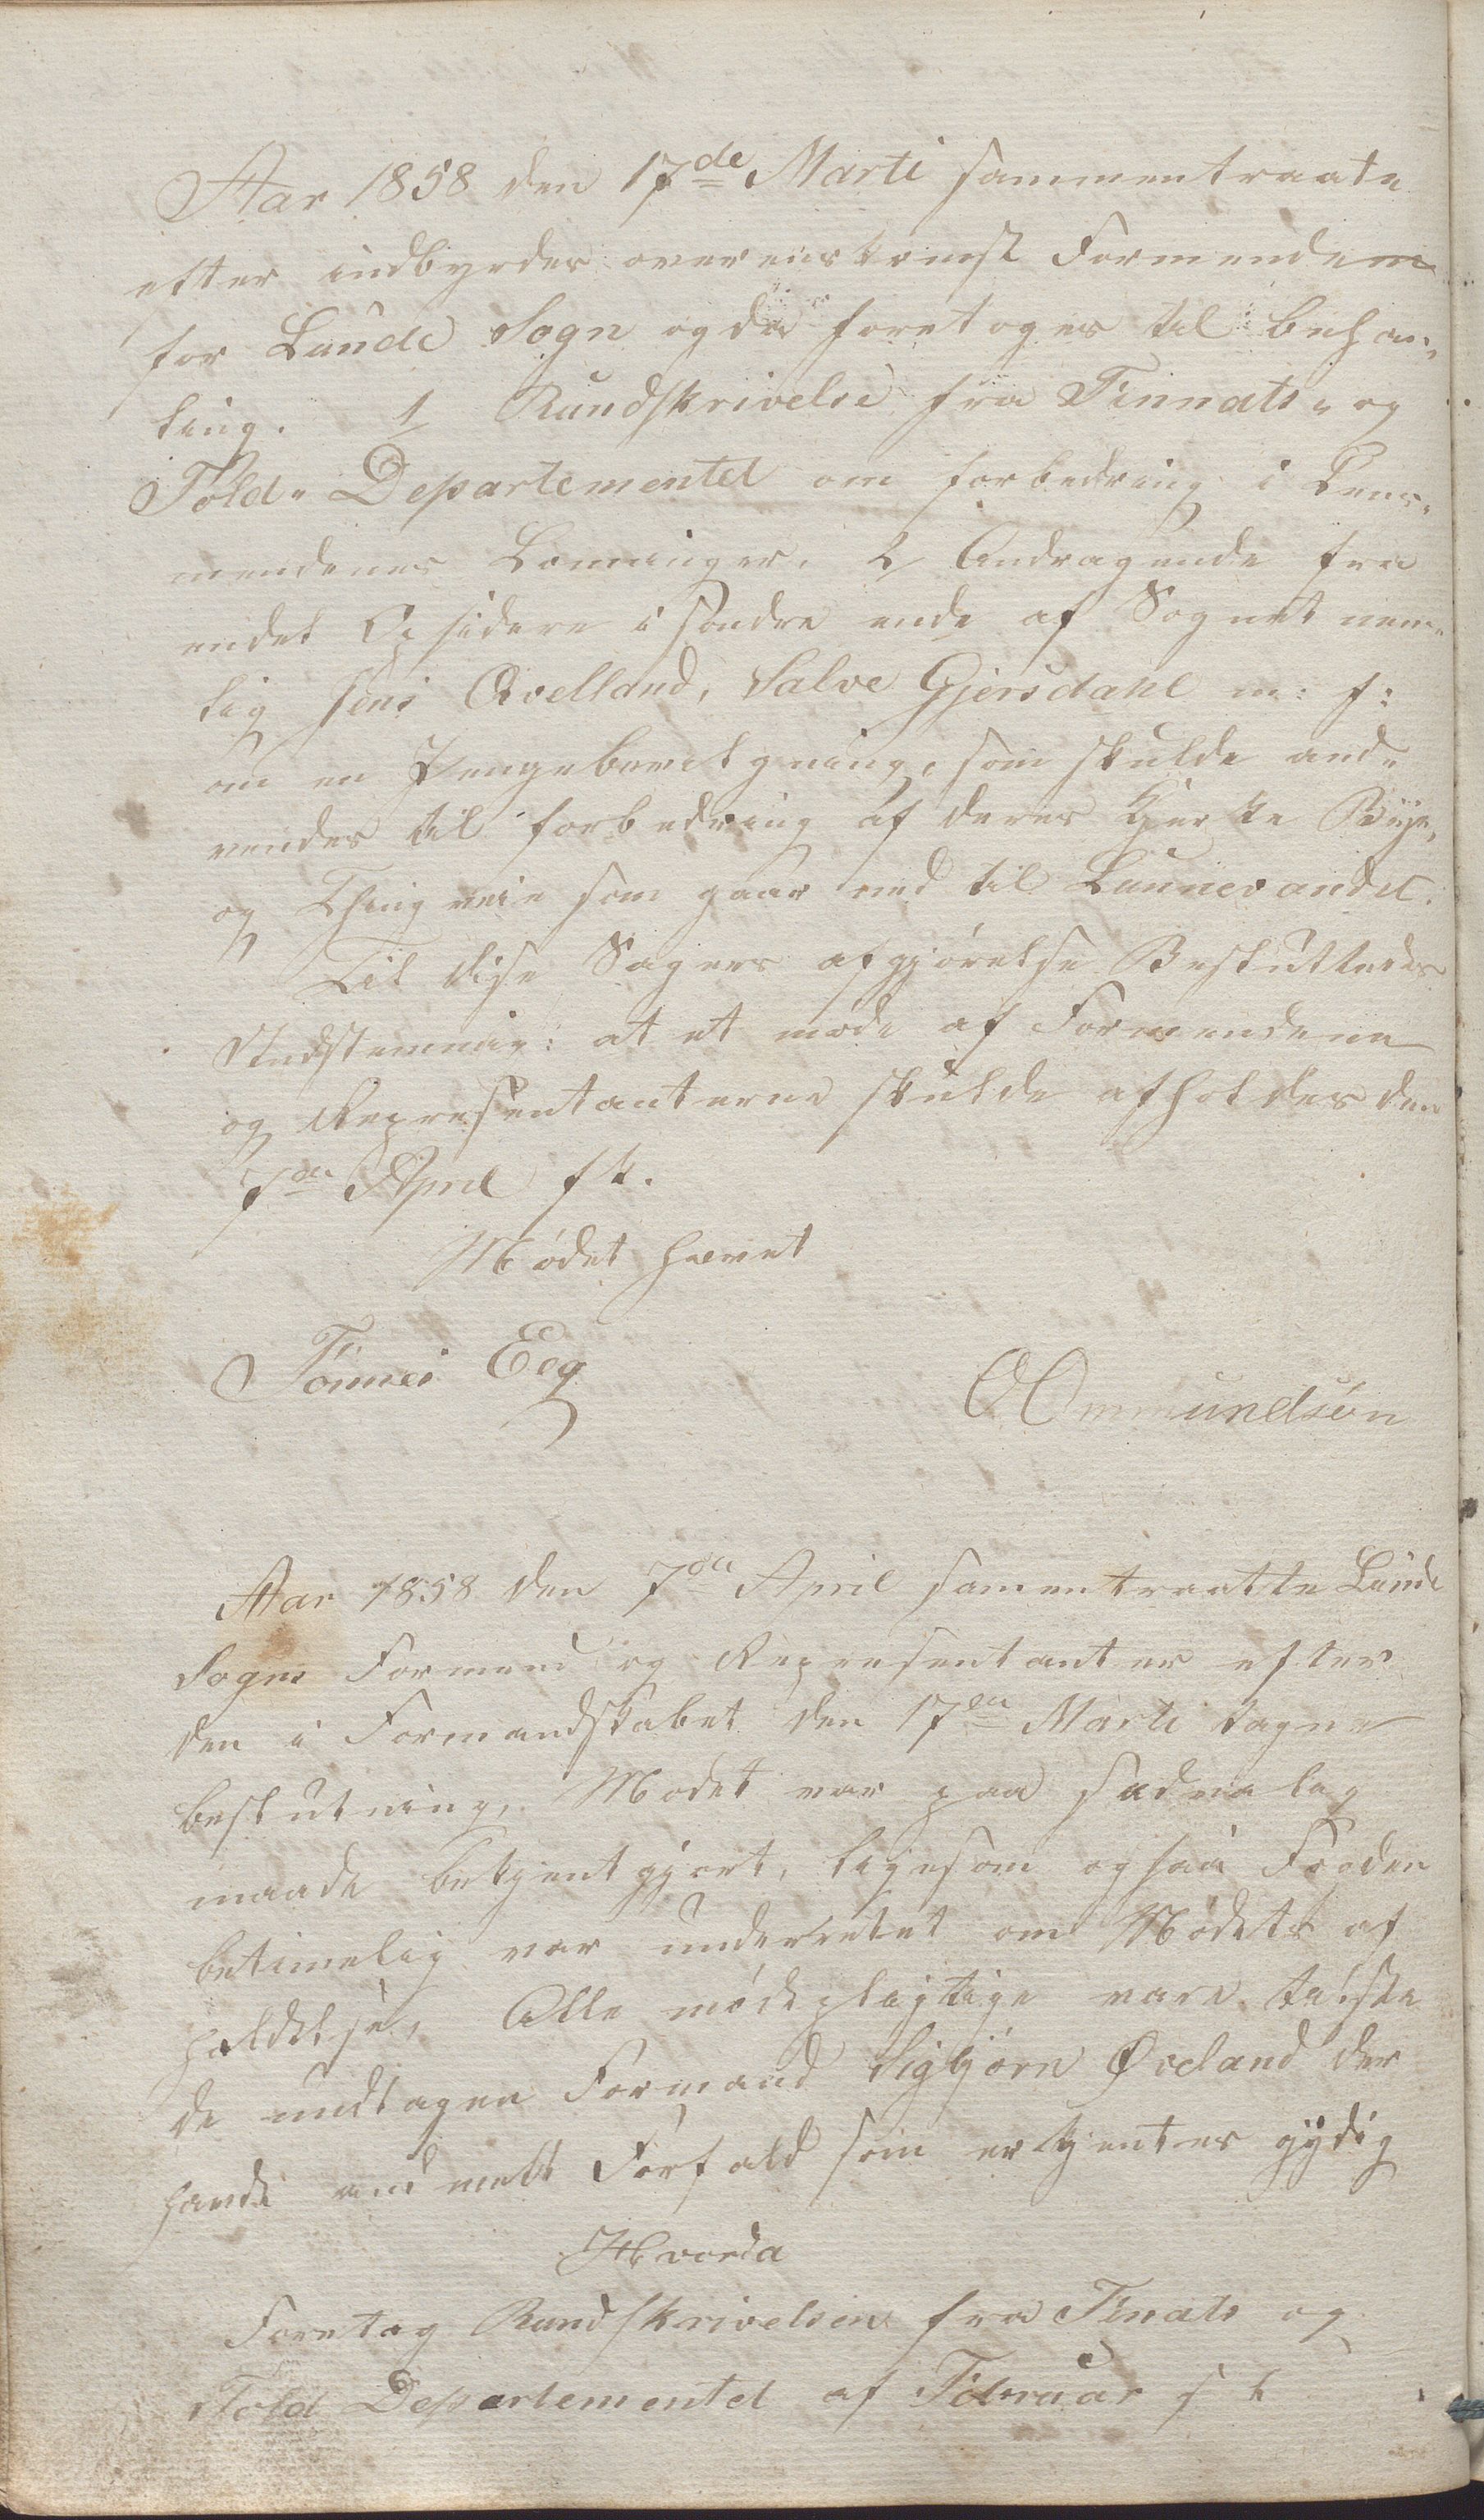 Aar 1858 den 17de Marti sammentraate
efter indbyrdes overenskomst Formendene
for Lunde Sogn og da foretoges til behan„
ling. 1/ Rundskrivelse fra Finnats„ og
Told„ Departementet om forbedring i Lens„
mendenes Lønninger. 2/ Andragende fra
endel Opsidere i søndre ende af Sognet nem„
lig Jens Qvelland, Salve Gjersdahl m: f:
om en Pengebevilgning, som skulde and„
vendes til forbedring af deres Kjerke Bye,
og Thingveie som gaar ned til Lunnevandet.
Til disse Sagers afgjørelse Besluttedes
Endstemmig: at et møde af Formendene
og Representanterne skulde afholdes den
7de April f k.
Mødet hævet
Tønnes Eeg
OOmmundsøn
Aar 1858 den 7de April samentraatte Lunde
Sogns Formend og Representanter efter
den i Formandskabet den 17de Marti tagne
beslutning. Modet var paa sædvaalig
maade bekjentgjort, ligesom ogsaa Fogden
betimelig var underretet om Mødets af
holdelse, Alle mødepligtige vare tilste
de undtagen Formand Sigbjørn Øveland der
havde anmelt Forfald som erkjentes gydig
Hvorda
Foretog Rundskrivelsen fra Finats og
Told Departementet af Februar s t